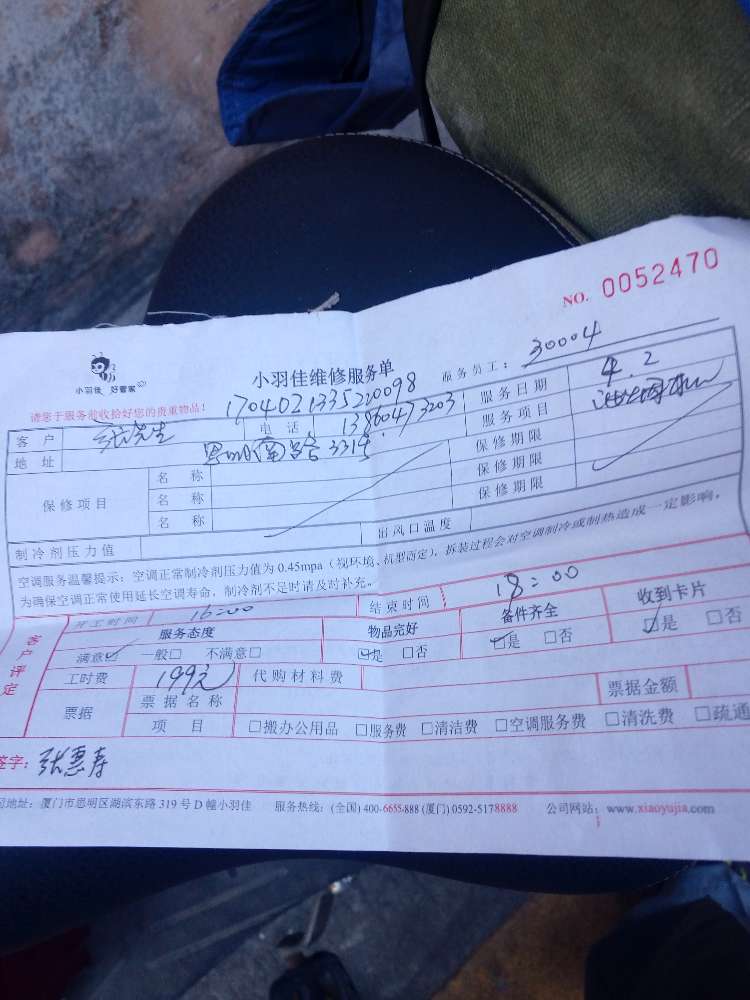 NO. 0052470
小羽佳 好管家
小羽佳维修服务单
服务员工： 30004
请您于服务前收拾好您的贵重物品！
1704021335220098
客户 张先生 电话 13860473203 服务日期 4.2
地址 331号 服务项目
保修项目 名称 保修期限
名称 保修期限
名称 保修期限
制冷剂压力值 出风口温度
空调服务温馨提示：空调正常制冷剂压力值为 0.45mpa（视环境、机型而定），拆装过程会对空调制冷或制热造成一定影响。
为确保空调正常使用延长空调寿命，制冷剂不足时请及时补充。
客户评定
开工时间 16:00 结束时间 18:00
服务态度 物品完好 备件齐全 收到卡片
满意☑ 一般□ 不满意□ ☑是 □否 ☑是 □否 ☑是 □否
工时费 199元 代购材料费
票据 票据名称 票据金额
项目 □搬办公用品 □服务费 □清洁费 □空调服务费 □清洗费 □疏通
签字： 张惠寿
司地址：厦门市思明区湖滨东路 319 号 D 幢小羽佳 服务热线：(全国) 400-6655-888 (厦门) 0592-5178888 公司网站：www.xiaoyujia.com